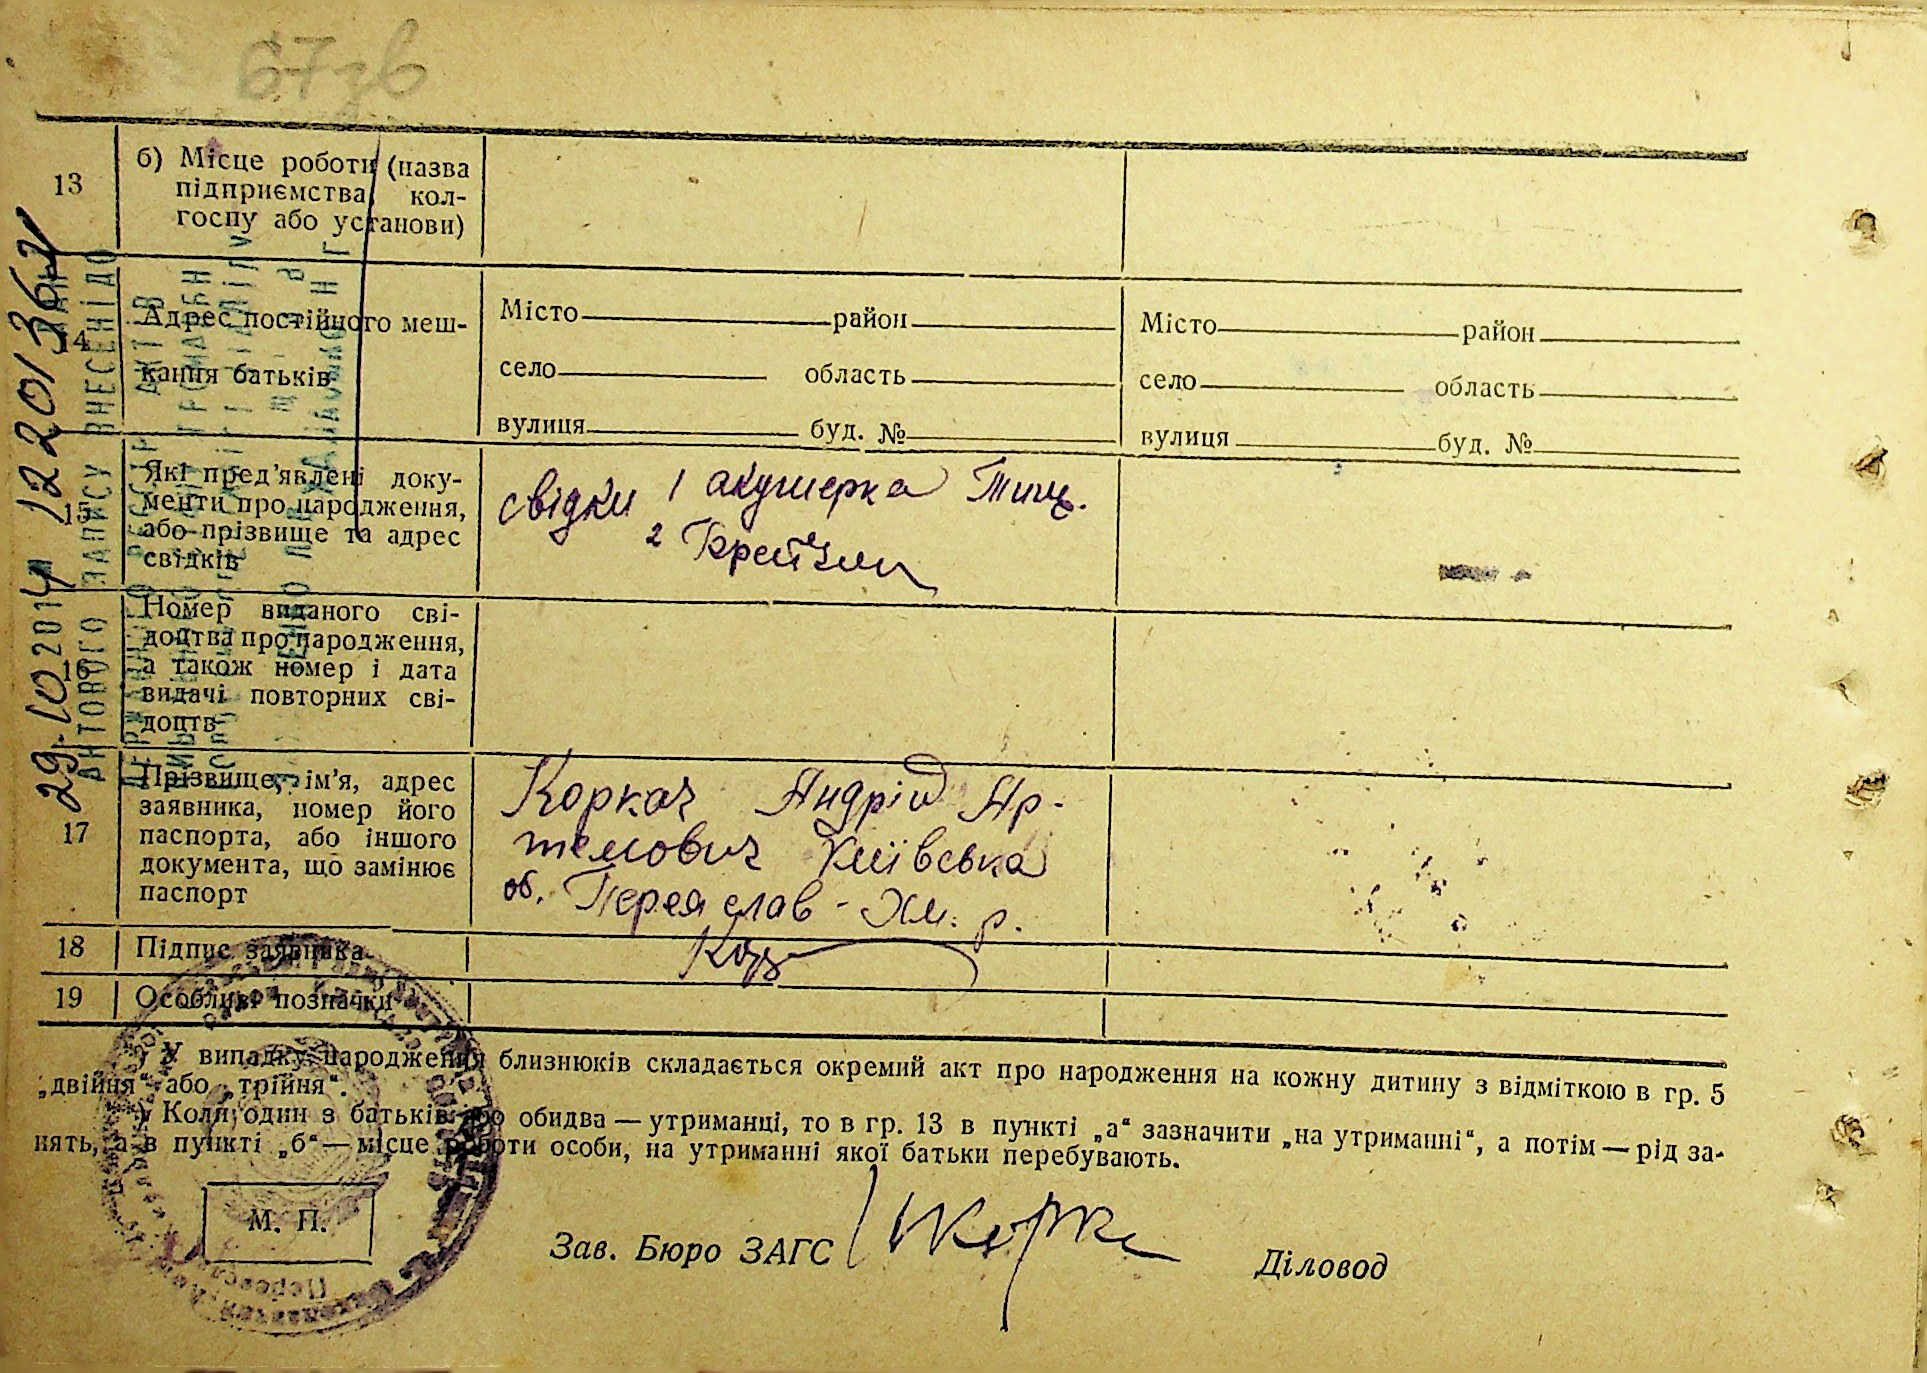 67зв
13
б) Місце роботи (назва
підприємства, кол-
госпу або установи)
14
Адрес постійного меш-
кання батьків
Місто район
село область
вулиця буд. №
Місто район
село область
вулиця буд. №
15
Які пред'явлені доку-
менти про народження,
або прізвище та адрес
свідків
свідки 1 акушерка
2
16
Номер виданого сві-
доцтва про народження,
а також номер і дата
видачі повторних сві-
доцтв
17
Прізвище, ім'я, адрес
заявника, номер його
паспорта, або іншого
документа, що замінює
паспорт
Коркач Андрій Ар-
темович Київська
об. Переяслав-Хм. р.
18
Підпис заявника
19
Особливі позначки
29.10 2014 12201362
АКТОВОГО ЗАПИСУ ВНЕСЕНІ ДО
) У випадку народження близнюків складається окремий акт про народження на кожну дитину з відміткою в гр. 5
„двійня“ або „трійня“.
) Коли один з батьків або обидва — утриманці, то в гр. 13 в пункті „а“ зазначити „на утриманні“, а потім — рід за-
нять, а в пункті „б“ — місце роботи особи, на утриманні якої батьки перебувають.
М. П.
Зав. Бюро ЗАГС
Діловод